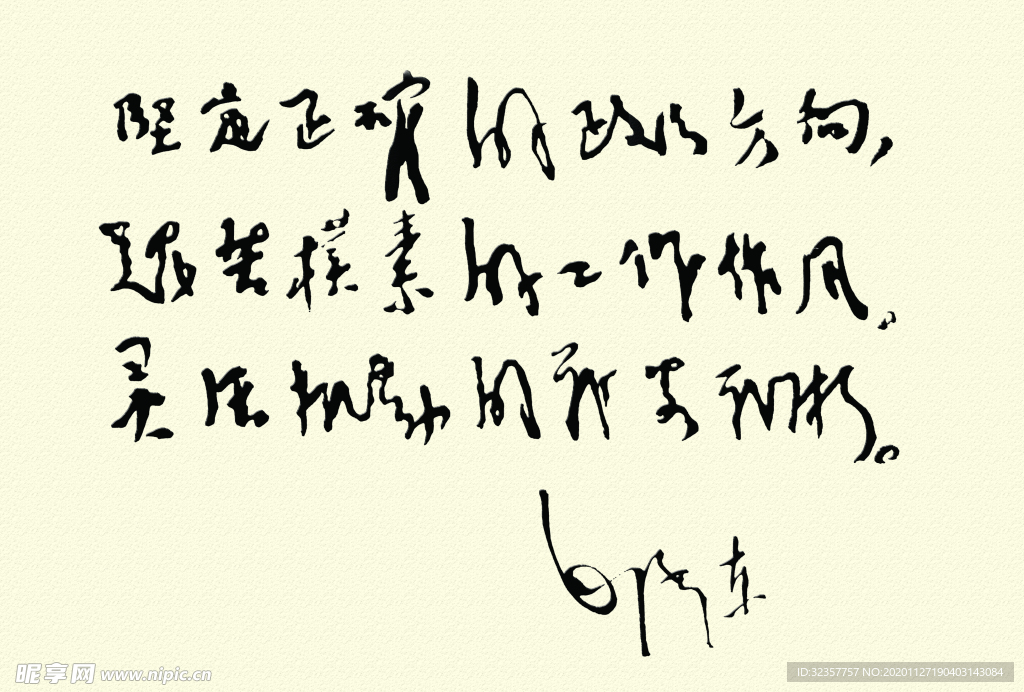 坚定正确的政治方向，
艰苦朴素的工作作风。
灵活机动的战略战术。
毛泽东
昵享网 www.nipic.cn
ID:32357757 NO:20201127190403143084